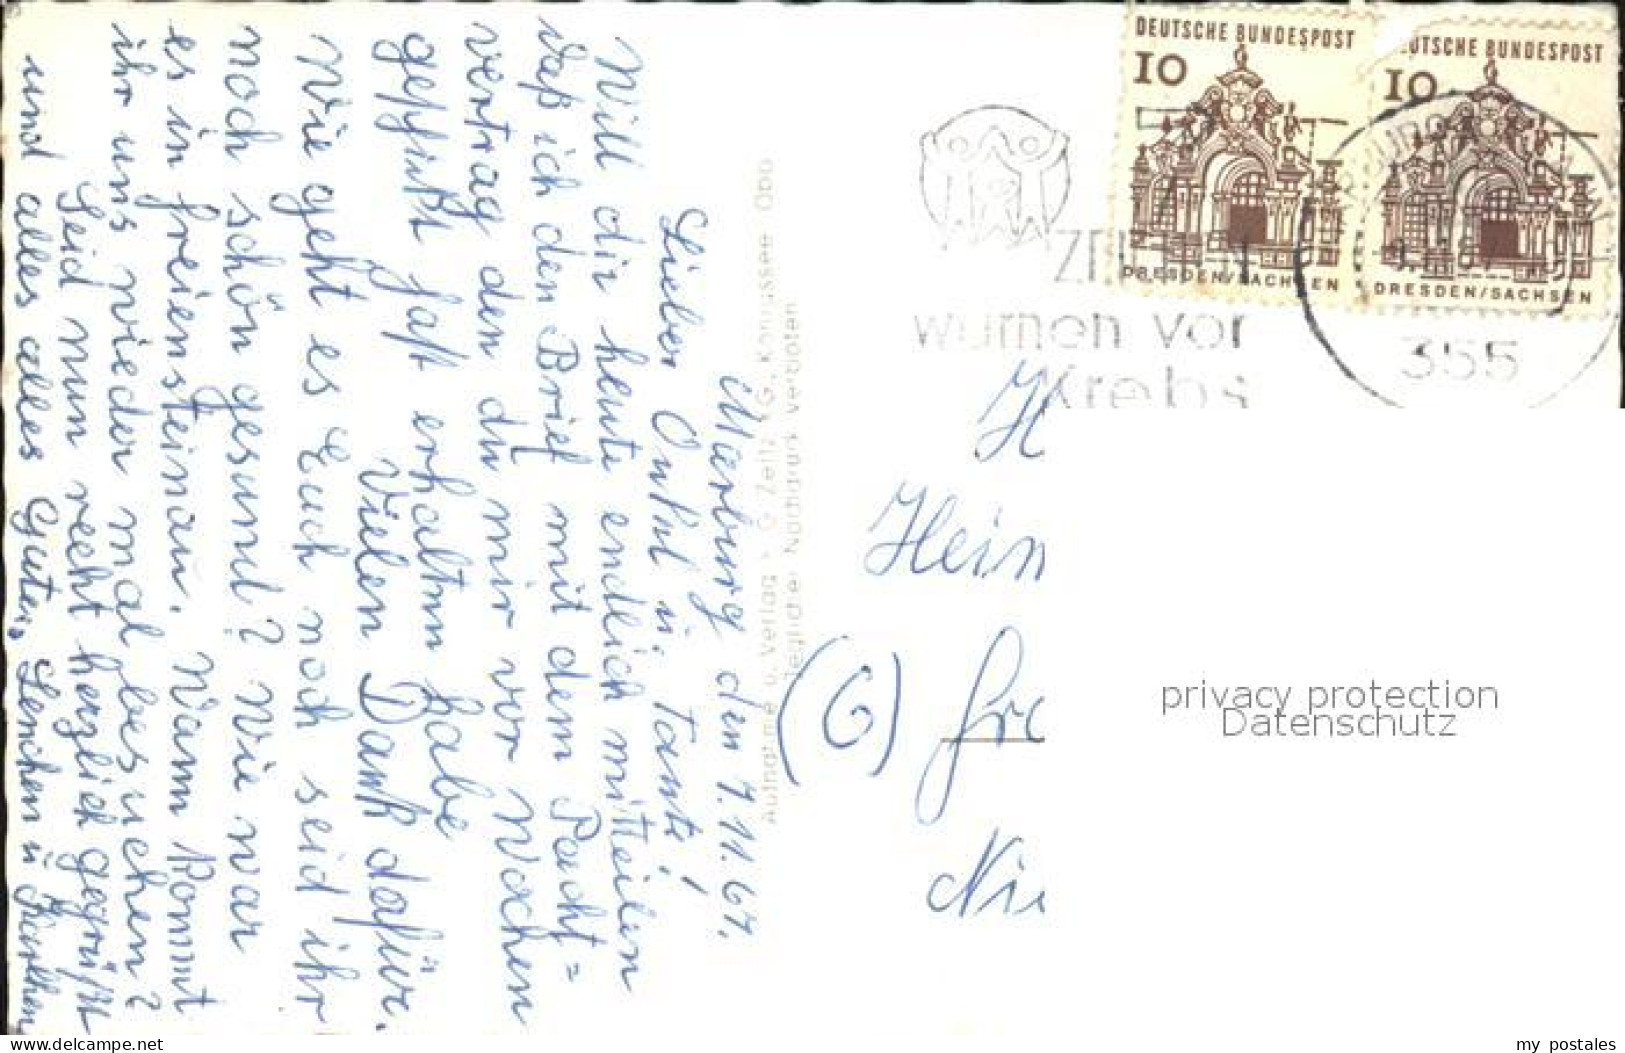 Marburg den 7.11.67.
Lieber Onkel u. Tante!
Will dir heute endlich mitteilen
daß ich den Brief mit dem Pacht=
vertrag den du mir vor Wochen
geschickt fast erhalten habe
Vielen Dank dafür.
Wie geht es Euch noch seid ihr
noch schön gesund? Wie war
es in freiensteinau. Wann kommt
ihr uns wieder mal besuchen?
Seid nun recht herzlich gegrüßt
und alles alles Gute. Lenchen u Karlchen
Aufnahme u. Verlag
Jeglicher Nachdruck verboten
DEUTSCHE BUNDESPOST
10
DRESDEN/SACHSEN
DEUTSCHE BUNDESPOST
10
DRESDEN/SACHSEN
355
vor
Krebs
H
Hein
(G)
Ni
privacy protection
Datenschutz
www.ansichtskarten-center.de
my postales